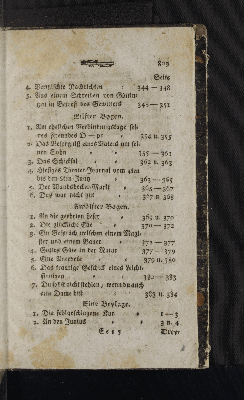 Seite
4. Vermischte Nachrichten 344 — 348
5. Aus einem Schreiben von
gen in Betreff des Gewitters 349 — 351
Eilfter Bogen.
1. Am ehelichen Verbindungstage sei-
nes Freundes D — 354 u. 355
2. Das eines Vaters um sei-
nen Sohn 355 — 361
3. Das Schicksal 362 u. 363
4. Hiesiges Theater-Journal vom
bis den Juny 363 — 365
5. Der Wandsbecker-Markt 365 — 367
6. Das war nicht gut 367 u. 368
Zwölfter Bogen.
1. An die geehrten Leser 369 u. 370
2. Die glückliche Ehe 370 — 372
3. Ein Gespräch zwischen einem Magi-
ster und einem Bauer 372 — 377
4. Gottes Güte in der Natur 377 — 379
5. Eine Anecdote 379 u. 380
6. Das traurige Geschick eines Leicht-
sinnigen 380 — 383
7. Du sollst nicht stehlen, wenn du auch
eine Dame bist 383 u. 384
Eine Beylage.
1. Die fehlgeschlagene Kur 1 — 3
2. An den Junius 3 u. 4